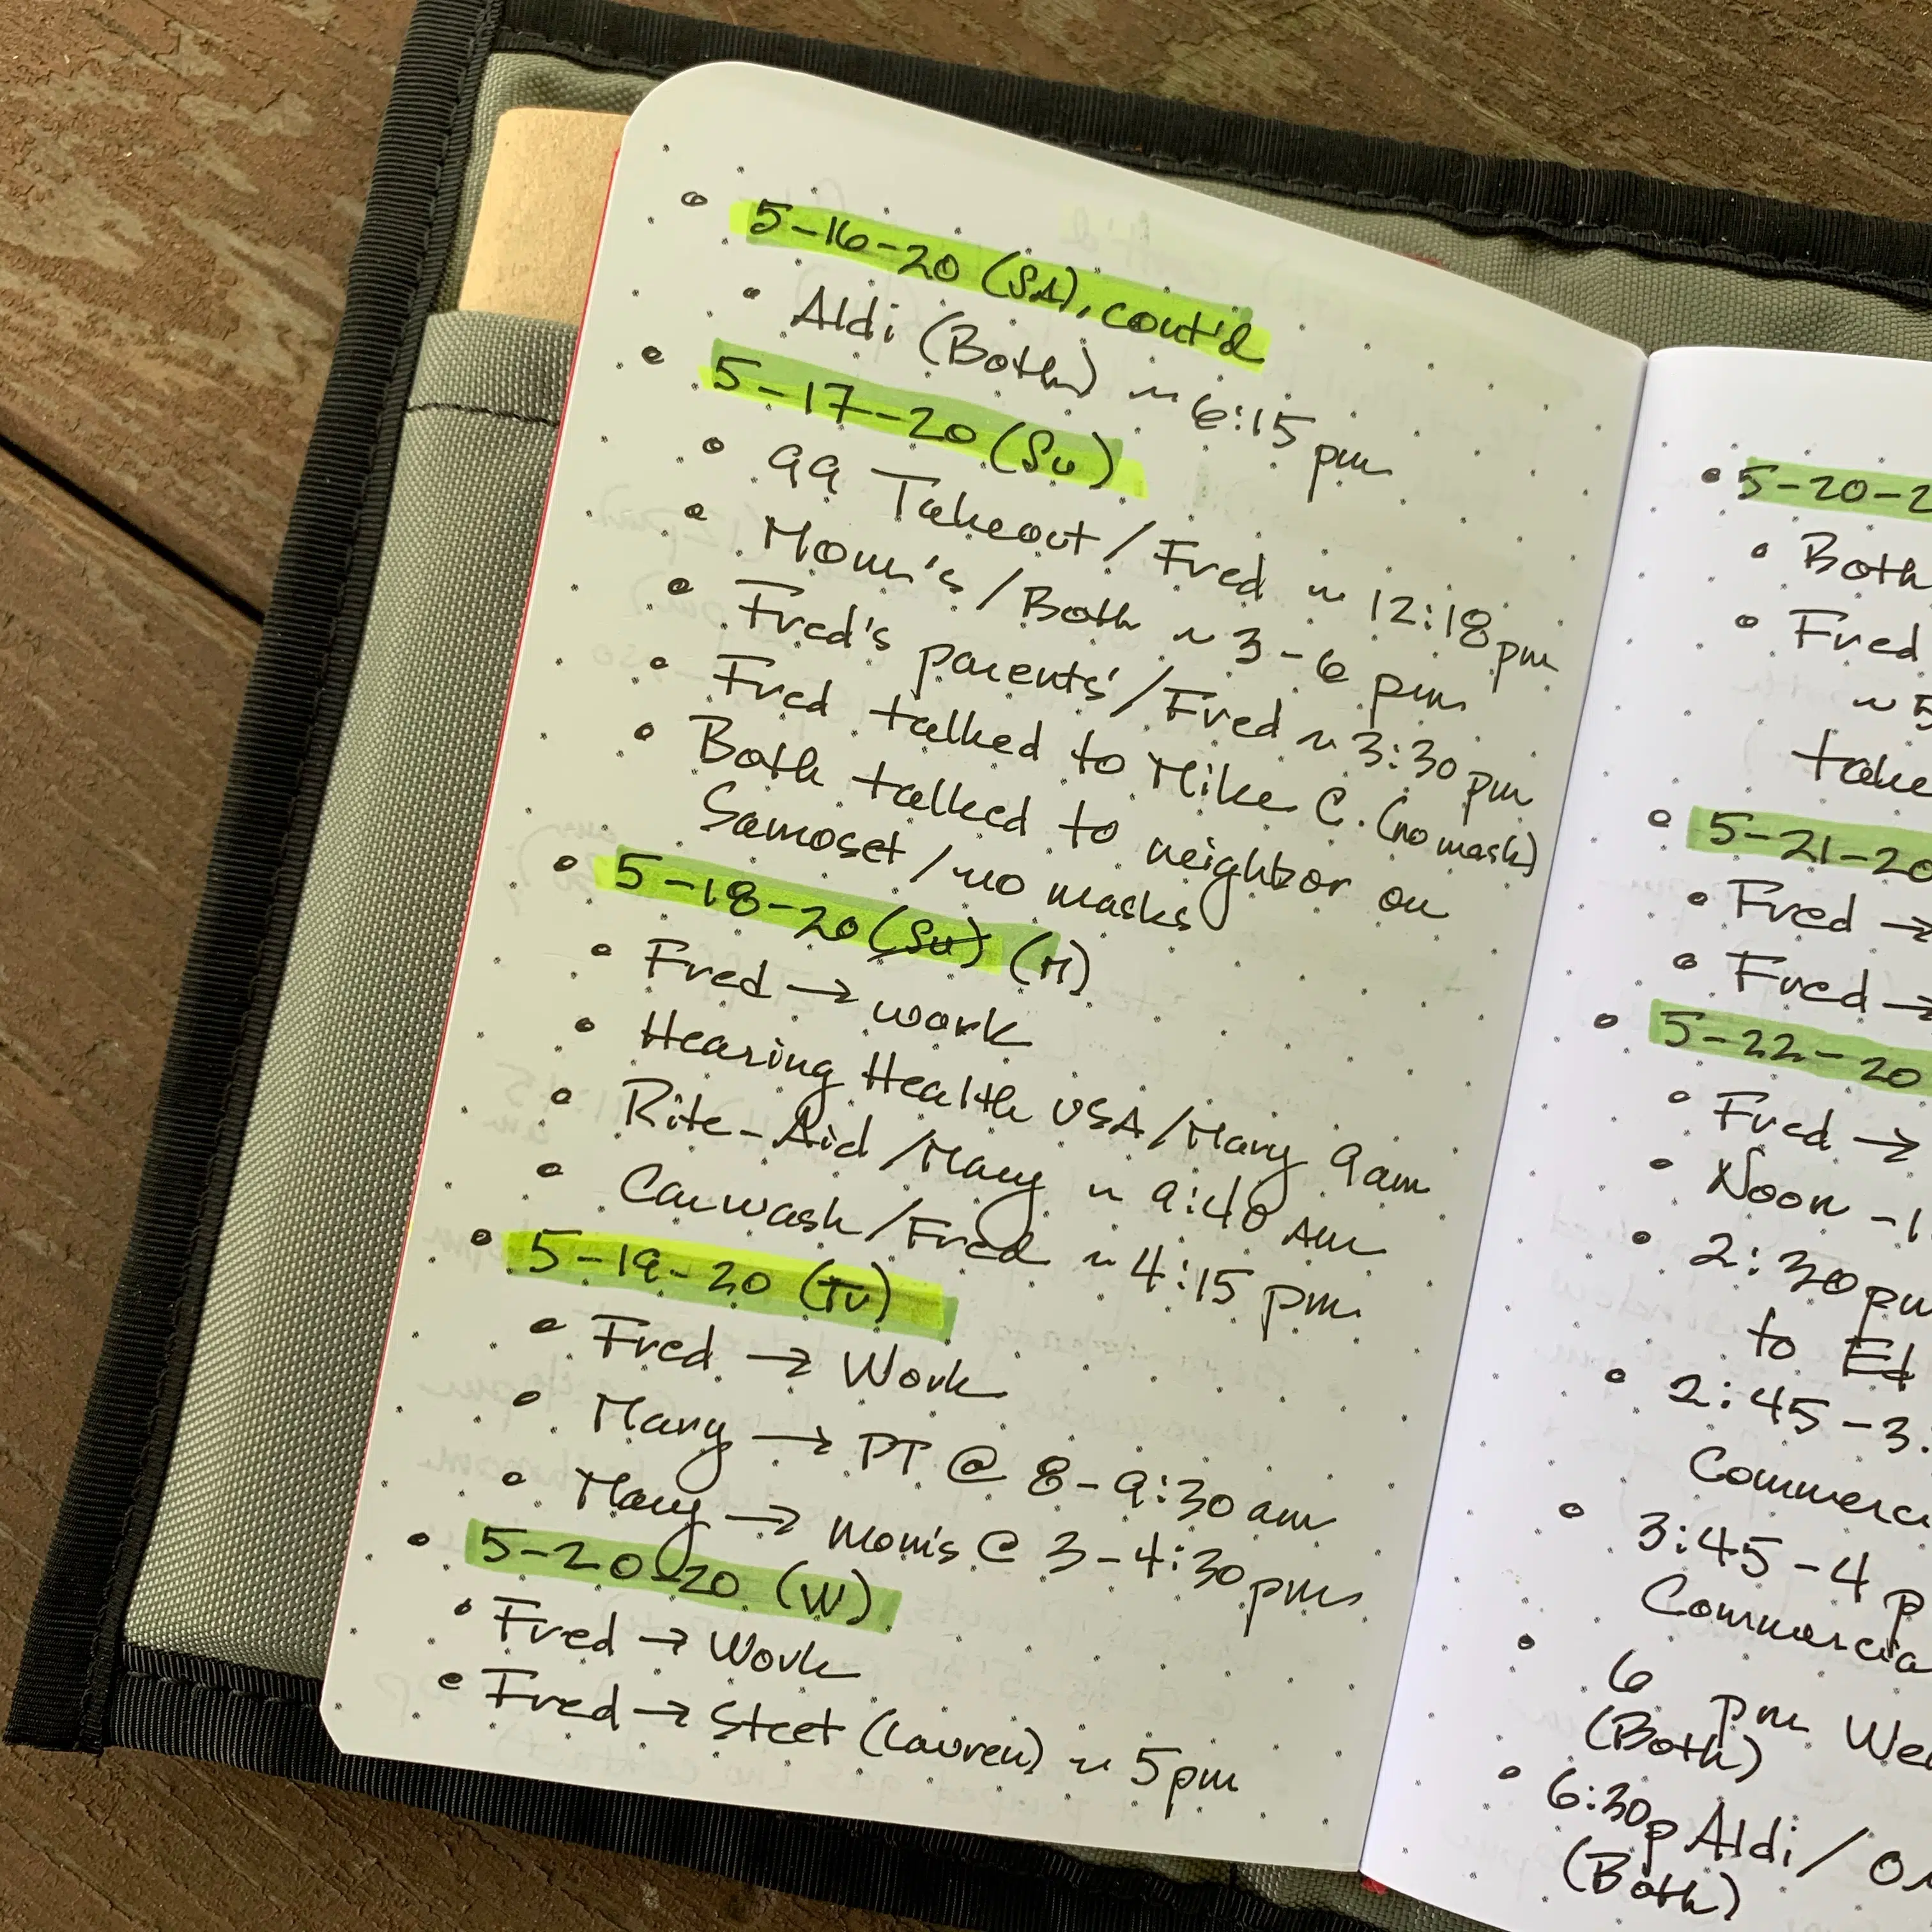 5-16-20 (SA), cont'd
Aldi (Both) ~ 6:15 pm
5-17-20 (Su)
99 Takeout / Fred ~ 12:18 pm
Mom's / Both ~ 3-6 pm
Fred's parents' / Fred ~ 3:30 pm
Fred talked to Mike C. (no mask)
Both talked to neighbor on
Samoset / no masks
5-18-20 (Su) (M)
Fred → work
Hearing Health USA / Mary 9am
Rite-Aid / Mary ~ 9:40 AM
Carwash / Fred ~ 4:15 pm
5-19-20 (Tu)
Fred → Work
Mary → PT @ 8-9:30 am
Mary → mom's @ 3-4:30 pm
5-20-20 (W)
Fred → Work
Fred → Steet (Lauren) ~ 5pm
5-20-2
Both
Fred
~ 5
take
5-21-20
Fred →
Fred →
5-22-20
Fred →
Noon -1
2:30 pm
to Ed
2:45-3:
Commerc
3:45-4 p
Commercia
6 pm We
(Both)
6:30p Aldi /
(Both)